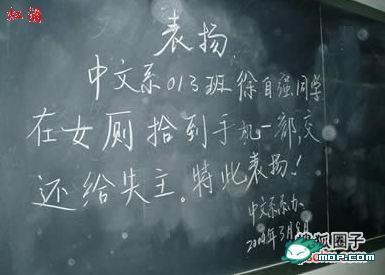 红潮
表扬
中文系013班徐自强同学
在女厕拾到手机一部,交
还给失主。特此表扬!
中文系系办
狐圈子
MOP.com